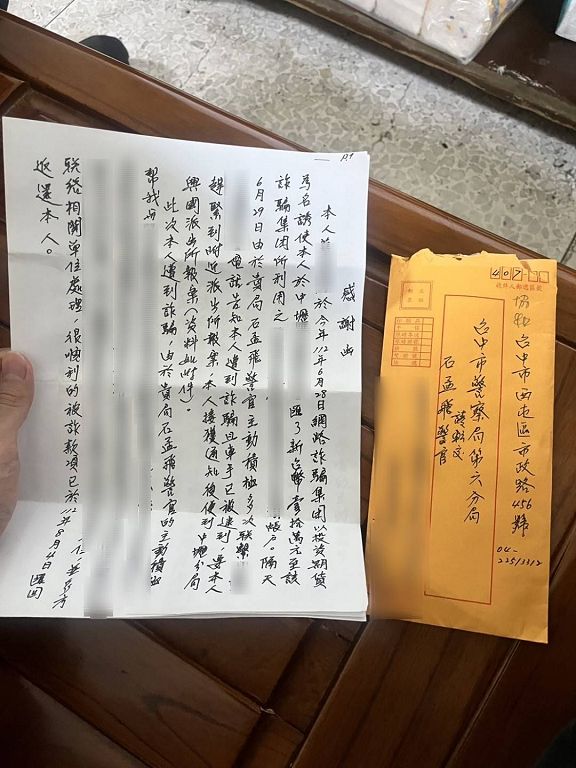 P1
感謝函
本人
於今年112年6月28日網路詐騙集團以投資期貨
為名誘使本人於中壢
匯了新台幣壹拾萬元至該
詐騙集團所利用之
帳戶。隔天
6月29日由於貴局石孟飛警官主動積極多次聯繫
電話告知本人遭到詐騙且車手已被逮到,要本人
趕緊到附近派出所報案,本人接獲通知後便到中壢分局
興國派出所報案(資料如附件)。
此次本人遭到詐騙,由於貴局石孟飛警官的主動積極
幫我與
聯絡相關單位處理,很順利的被詐款項已於112年8月4日匯回
返還本人。
407
收件人郵遞區號
台中市西屯區市政路456號
04-
22513312
台中市警察局第六分局
請轉交
石孟飛警官